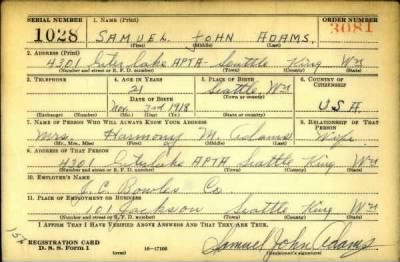 SERIAL NUMBER 1. NAME (Print) ORDER NUMBER
1028 SAMUEL JOHN ADAMS. 3081
(First) (Middle) (Last)
2. ADDRESS (Print)
4301 Interlake APTA- Seattle King Wn
(Number and street or R. F. D. number) (Town) (County) (State)
3. TELEPHONE 4. AGE IN YEARS 5. PLACE OF BIRTH 6. COUNTRY OF CITIZENSHIP
21 Seattle, Wn
DATE OF BIRTH (Town or county)
Nov. 3rd 1918 USA
(Exchange) (Number) (Mo.) (Day) (Yr.) (State or country)
7. NAME OF PERSON WHO WILL ALWAYS KNOW YOUR ADDRESS 8. RELATIONSHIP OF THAT PERSON
Mrs. Harmony M. Adams Wife
(Mr., Mrs., Miss) (First) (Middle) (Last)
9. ADDRESS OF THAT PERSON
4301 Interlake APTA Seattle King Wn
(Number and street or R. F. D. number) (Town) (County) (State)
10. EMPLOYER'S NAME
Bowles Co
11. PLACE OF EMPLOYMENT OR BUSINESS
101 Jackson Seattle King Wn
(Number and street or R. F. D. number) (Town) (County) (State)
I AFFIRM THAT I HAVE VERIFIED ABOVE ANSWERS AND THAT THEY ARE TRUE.
REGISTRATION CARD
D. S. S. Form 1 (over) 16—17105 Samuel John Adams
(Registrant's signature)